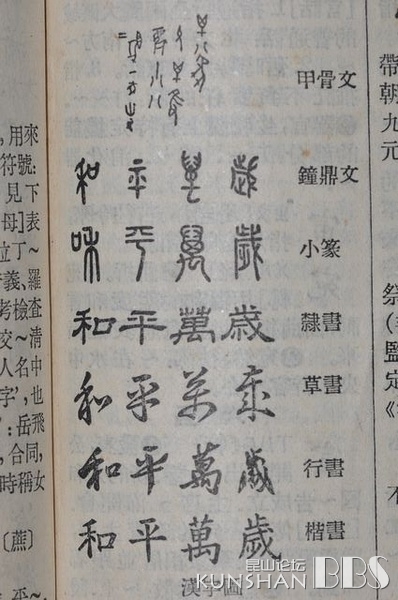 ，用來
符號:
見下
母]表
立丁～
義、羅
考檢查
交～清
人名中
字',也
: 岳飛
, 合同,
時稱女
平～,
甲骨文
和 平 萬 歲 鐘鼎文
和 平 萬 歲 小篆
和 平 萬 歲 隸書
和 平 万 歲 草書
和 平 萬 歲 行書
和 平 萬 歲 楷書
漢字圖
帶
朝
九
元
祭
監
定
不
昆山论坛
KUNSHAN BBS